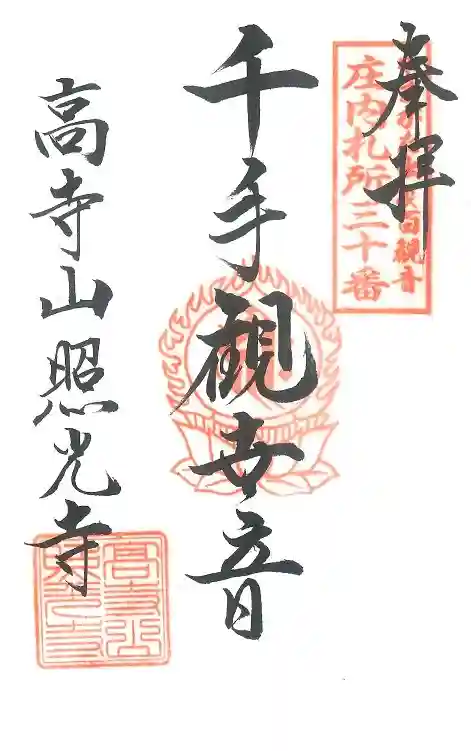 奉拝
百観音
庄内札所三十番
千手観世音
高寺山照光寺